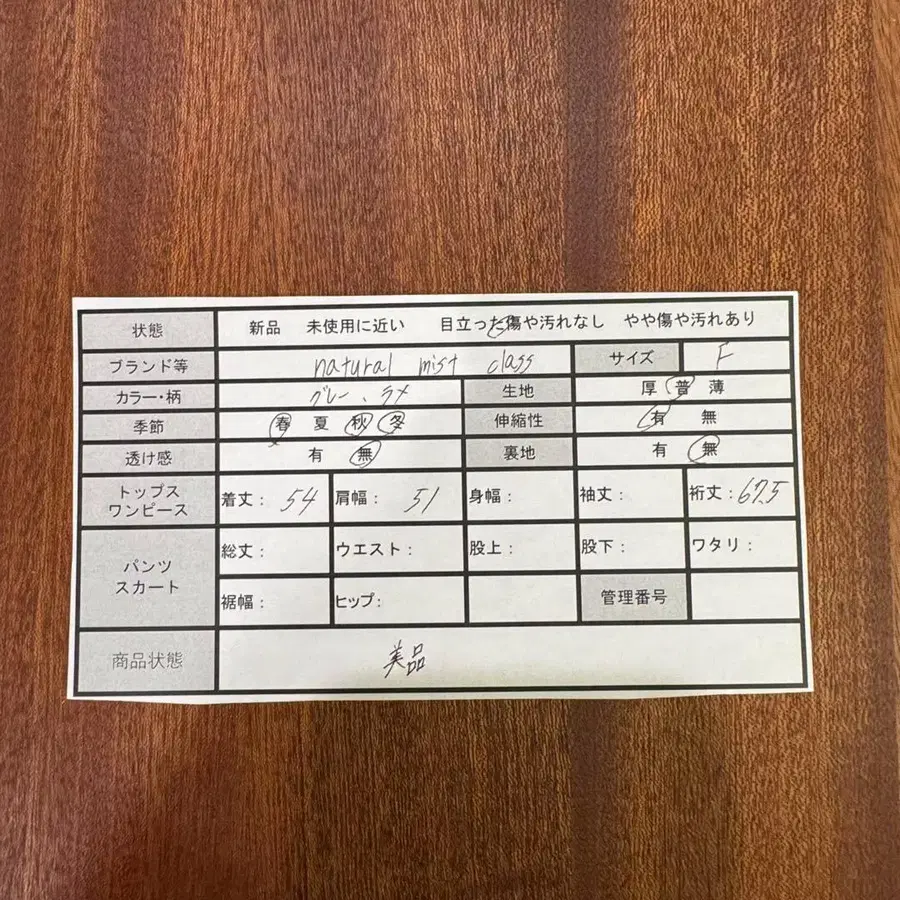 状態 新品 未使用に近い 目立った傷や汚れなし やや傷や汚れあり
ブランド等 natural mist class サイズ F
カラー・柄 グレー、ラメ 生地 厚 普 薄
季節 春 夏 秋 冬 伸縮性 有 無
透け感 有 無 裏地 有 無
トップス
ワンピース 着丈: 54 肩幅: 51 身幅: 袖丈: 裄丈: 67.5
パンツ
スカート 総丈: ウエスト: 股上: 股下: ワタリ:
裾幅: ヒップ: 管理番号
商品状態 美品